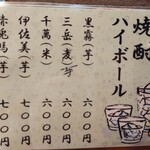 焼酎
ハイボール
黒霧(芋) 六〇〇円
三岳(芋) 六〇〇円
千萬(米) 六〇〇円
伊佐美(芋) 七〇〇円
赤兎馬(芋) 七〇〇円